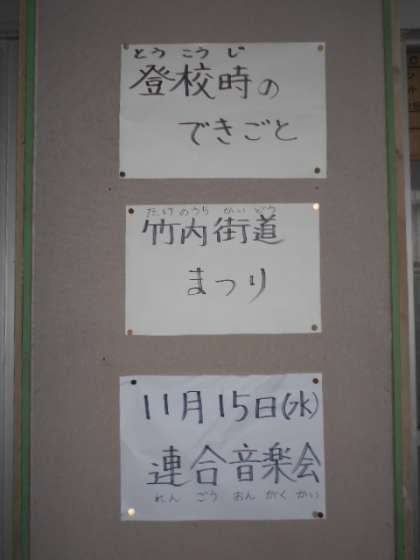 とうこうじ
登校時の
できごと
たけのうちかいどう
竹内街道
まつり
11月15日(水)
連合音楽会
れんごうおんがくかい